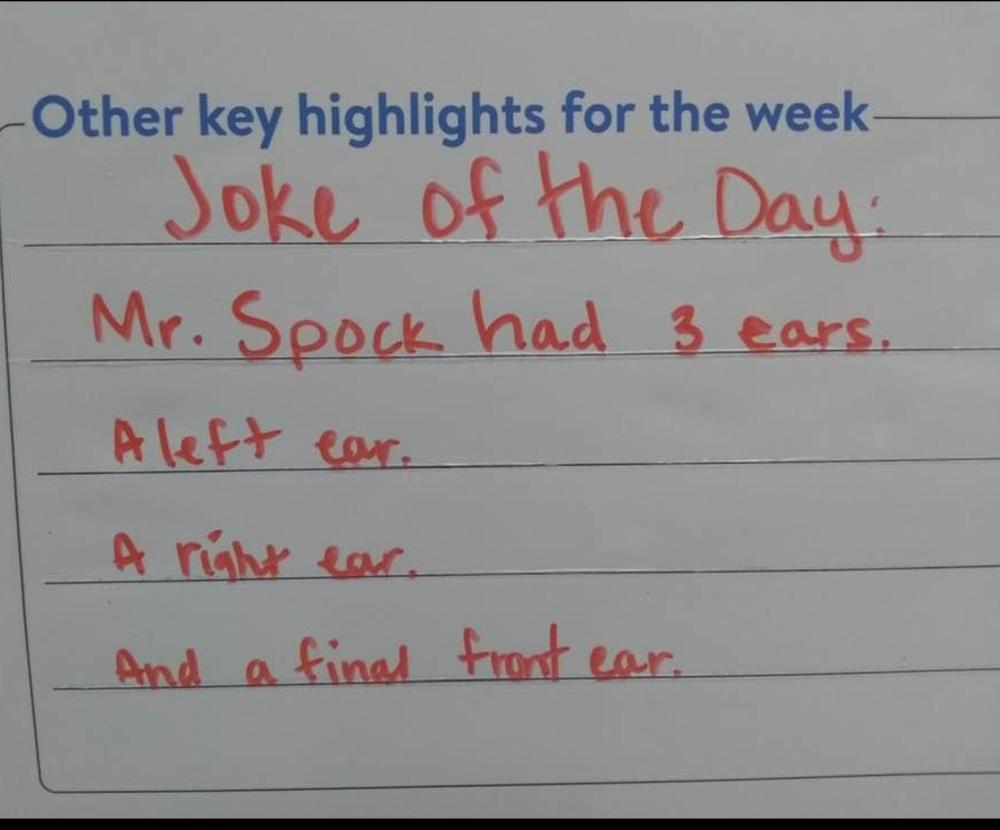 Other key highlights for the week
Joke of the Day:
Mr. Spock had 3 ears.
A left ear.
A right ear.
And a final front ear.